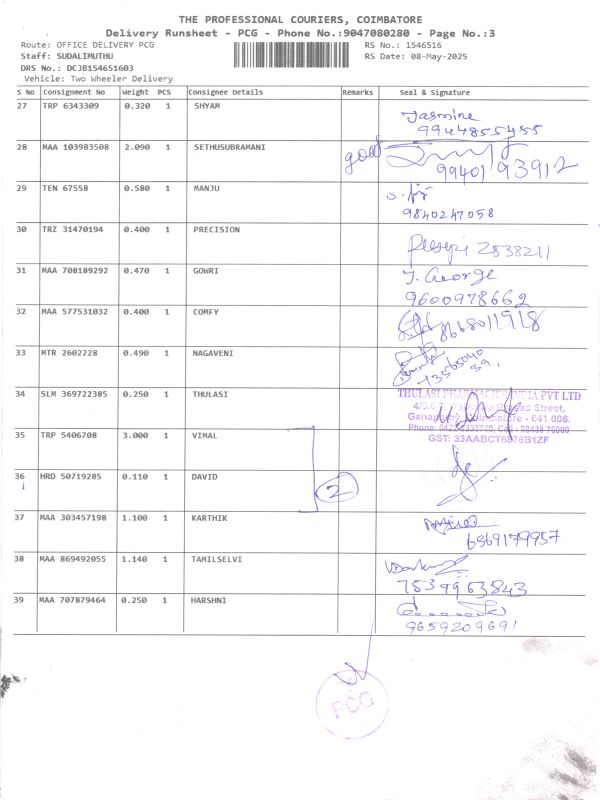 THE PROFESSIONAL COURIERS, COIMBATORE
Delivery Runsheet - PCG - Phone No.:9047080280 - Page No.:3
Route: OFFICE DELIVERY PCG RS No.: 1546516
Staff: SUDALIMUTHU RS Date: 08-May-2025
DRS No.: DCJB154651603
Vehicle: Two Wheeler Delivery
S No Consignment No Weight PCS Consignee Details Remarks Seal & Signature
27 TRP 6343309 0.320 1 SHYAM
Jasmine
9944855455
28 MAA 103983508 2.090 1 SETHUSUBRAMANI
99401 93912
29 TEN 67558 0.580 1 MANJU
9840247058
30 TRZ 31470194 0.400 1 PRECISION
2538211
31 MAA 708189292 0.470 1 GOWRI
J. George
9600978662
32 MAA 577531032 0.400 1 COMFY
8668011918
33 MTR 2602228 0.490 1 NAGAVENI
34 SLM 369722385 0.250 1 THULASI
THULASI PHARMACIES INDIA PVT LTD
Street,
Coimbatore - 641 006.
GST: 33AABCT6876B1ZF
35 TRP 5406708 3.000 1 VIMAL
36 HRD 50719285 0.110 1 DAVID
2
37 MAA 303457198 1.100 1 KARTHIK
6369179957
38 MAA 869492055 1.140 1 TAMILSELVI
7539953843
39 MAA 707879464 0.250 1 HARSHNI
9659209691
PCG